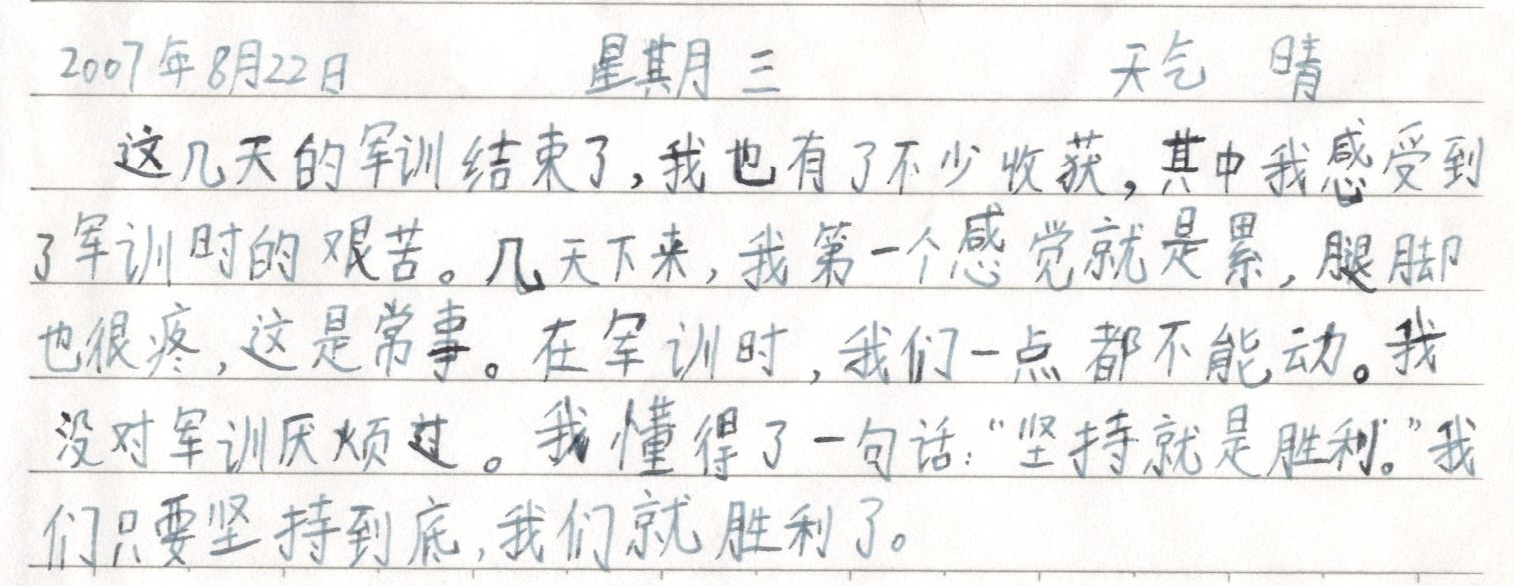 2007年8月22日 星期月三 天气 晴
这几天的军训结束了,我也有了不少收获,其中我感受到
了军训时的艰苦。几天下来,我第一个感觉就是累,腿脚
也很疼,这是常事。在军训时,我们一点都不能动。我
没对军训厌烦过。我懂得了一句话:“坚持就是胜利。”我
们只要坚持到底,我们就胜利了。